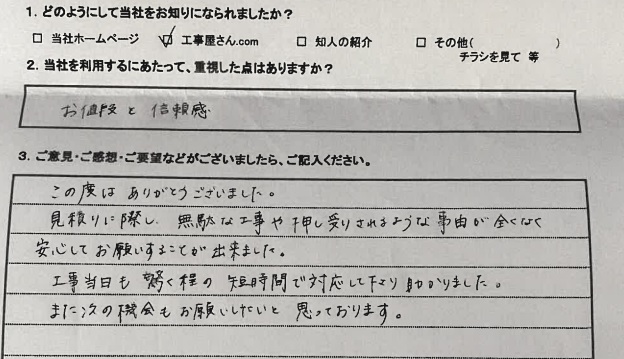 1. どのようにして当社をお知りになられましたか?
□ 当社ホームページ ☑ 工事屋さん.com □ 知人の紹介 □ その他( )
チラシを見て 等
2. 当社を利用するにあたって、重視した点はありますか?
お値段と信頼感
3. ご意見・ご感想・ご要望などがございましたら、ご記入ください。
この度はありがとうございました。
見積りに際し、無駄な工事や押し売りされるような事由が全くなく
安心してお願いすることが出来ました。
工事当日も驚く程の短時間で対応して下さり助かりました。
また次の機会もお願いしたいと思っております。